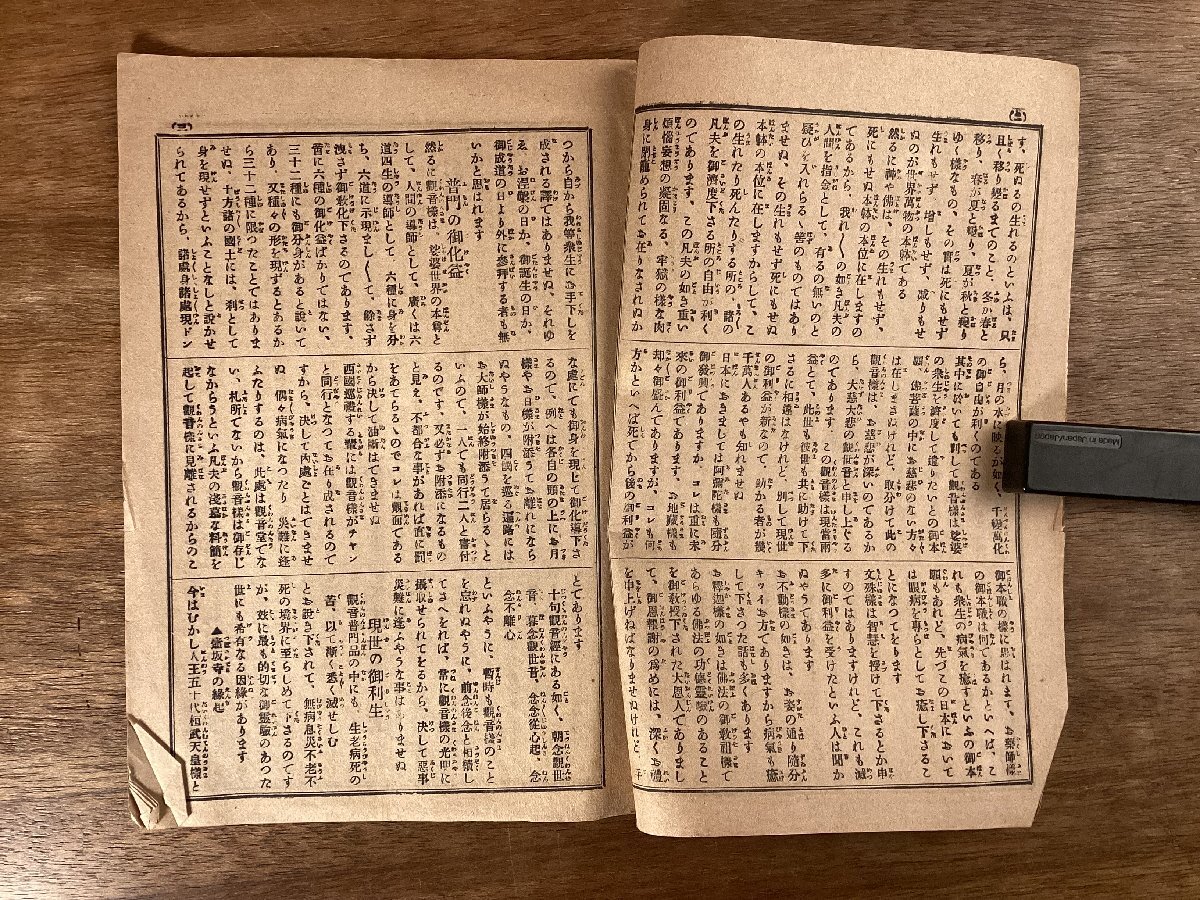 す、死ぬるの生れるのといふは、只
且、移り變るまでのこと、冬が春と
移り、春が夏と變り、夏が秋と變り
ゆく樣なもの、その實は死にもせず
生れもせず、増しもせず、減りもせ
ぬのが世界萬物の本躰である
然るに神や佛は、その生れもせず、
死にもせぬ本躰の本位に在しますの
であるから、我れ〳〵の如き凡夫の
人間を指金として、有るの無いのと
疑ひを入れらるゝ筈のものではあり
ませぬ、その生れもせず死にもせぬ
本躰の本位に在しますからして、こ
の生れたり死んたりする所の、諸の
凡夫を御濟度下さる所の自由が利く
のであります、この凡夫の如き重い
煩惱妄想の凝固なる、牢獄の樣な肉
身に閉籠められてお在りなされぬか
ら、月の水に映るが如く、千變萬化
の御自由が利くのである
其中に於いても別して觀音樣は娑婆
の衆生を濟度して遣りたいとの御本
願、佛菩薩の中にお慈悲のない方々
は在しまさぬけれど、取分けて此の
觀音樣は、お慈悲が深いのであるか
ら、大慈大悲の觀世音と申し上ぐる
益とて、此世も彼世も共に助けて下
さるに相違はなけれど、別して現世
の御利益が新なので、助かる者が幾
千萬人あるやも知れませぬ
日本におきましては阿彌陀樣も隨分
御發興でありますか、コレは重に未
來の御利益であります、お地藏樣も
却々御盛んでありますが、コレも何
方かといへば死てから後の御利益が
御本職の樣に思はれます、お藥師樣
の御本職は何であるかといへば、こ
れも衆生の病氣を癒すといふの御本
願もあれど、先づこの日本において
は眼病を專らとしてお癒し下さるこ
とになつてをります
文殊樣は智慧を授けて下さるとか申
すのではありますけれど、これも滅
多に御利益を受けたといふ人は聞か
ぬやうであります
お不動樣の如きは、お姿の通り隨分
キツイお方でありますから病氣も癒
して下さつた話も多くあります
お釋迦樣の如きは佛法の御敎祖樣で
あらゆる佛法の功德靈驗のあること
を御敎授下された大恩人でありまし
て、御恩報謝の爲めには、深くお禮
を申上げねばなりませぬけれど
(三)
つから自から我等衆生にお手下しを
成される譯ではありませぬ、それゆ
ゑ、お涅槃の日か、御誕生の日か、
御成道の日より外に參拜する者も無
いかと思はれます
普門の御化益
然るに觀音樣は、娑婆世界の本尊と
して、人間の導師として、廣くは六
道四生の導師として、六種に身を分
ち、六道に示現まし〳〵て、餘さず
洩さず御敎化下さるのであります、
啻に六種の御化益ばかりではない、
三十二種にも御分身があると説いて
あり、又種々の形を現ずるとあるか
ら三十二種に限つたことではありま
せぬ、十方諸の國土には、刹として
身を現せずといふことなしと説かせ
られてあるから、諸處身諸處現ドン
な處にても御身を現じて御化導下さ
るので、例へは各自の頭の上にお月
樣やお日樣が附添うてお離れになら
ぬやうなもの、四國を巡る遍路には
お大師樣が始終附添うて居らるゝと
いふので、一人でも同行二人と書付
るのです、又必ずお附添になるもの
と見え、不都合な事があれば直に罰
をあてらるゝのでコレは覿面である
から決して油斷はできませぬ
西國巡禮する輩には觀音樣がチャン
と同行となつてお在り成されるので
すから、決して内處ごとはできませ
ぬ、偶々病氣になつたり、災難に逢
ふたりするのは、此處は觀音堂でな
い、札所でないから觀音樣は御存じ
なからうといふ凡夫の淺墓な料簡を
起して觀音樣に見離されるからのこ
とであります
十句觀音經にある如く、朝念觀世
音、暮念觀世音、念念從心起、念
念不離心
といふやうに、暫時も觀音樣のこと
を忘れぬやうに、前念後念と相續し
てさへをれば、常に觀音樣の光明に
攝取せられてをるから、決して惡事
災難に逢ふやうな事はありませぬ
現世の御利生
觀音普門品の中にも、生老病死の
苦、以て漸く悉く滅せしむ
とお説き下されて、無病息災不老不
死の境界に至らしめて下さるのです
が、玆に最も的切な御靈驗のあつた
世にも希有なる因緣があります
▲壺坂寺の緣起
今はむかし人王五十代桓武天皇樣と
Made in Japan/Japon